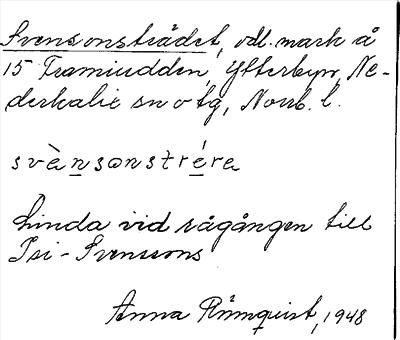 Svensonsträdet, odl. mark å
15 Framiudden, Ytterbyn, Ne-
derkalix sn o tg, Norrb. l.
svènsɷnstrére
Linda vid rågången till
Psi-Svensons
Anna Rönnquist, 1948